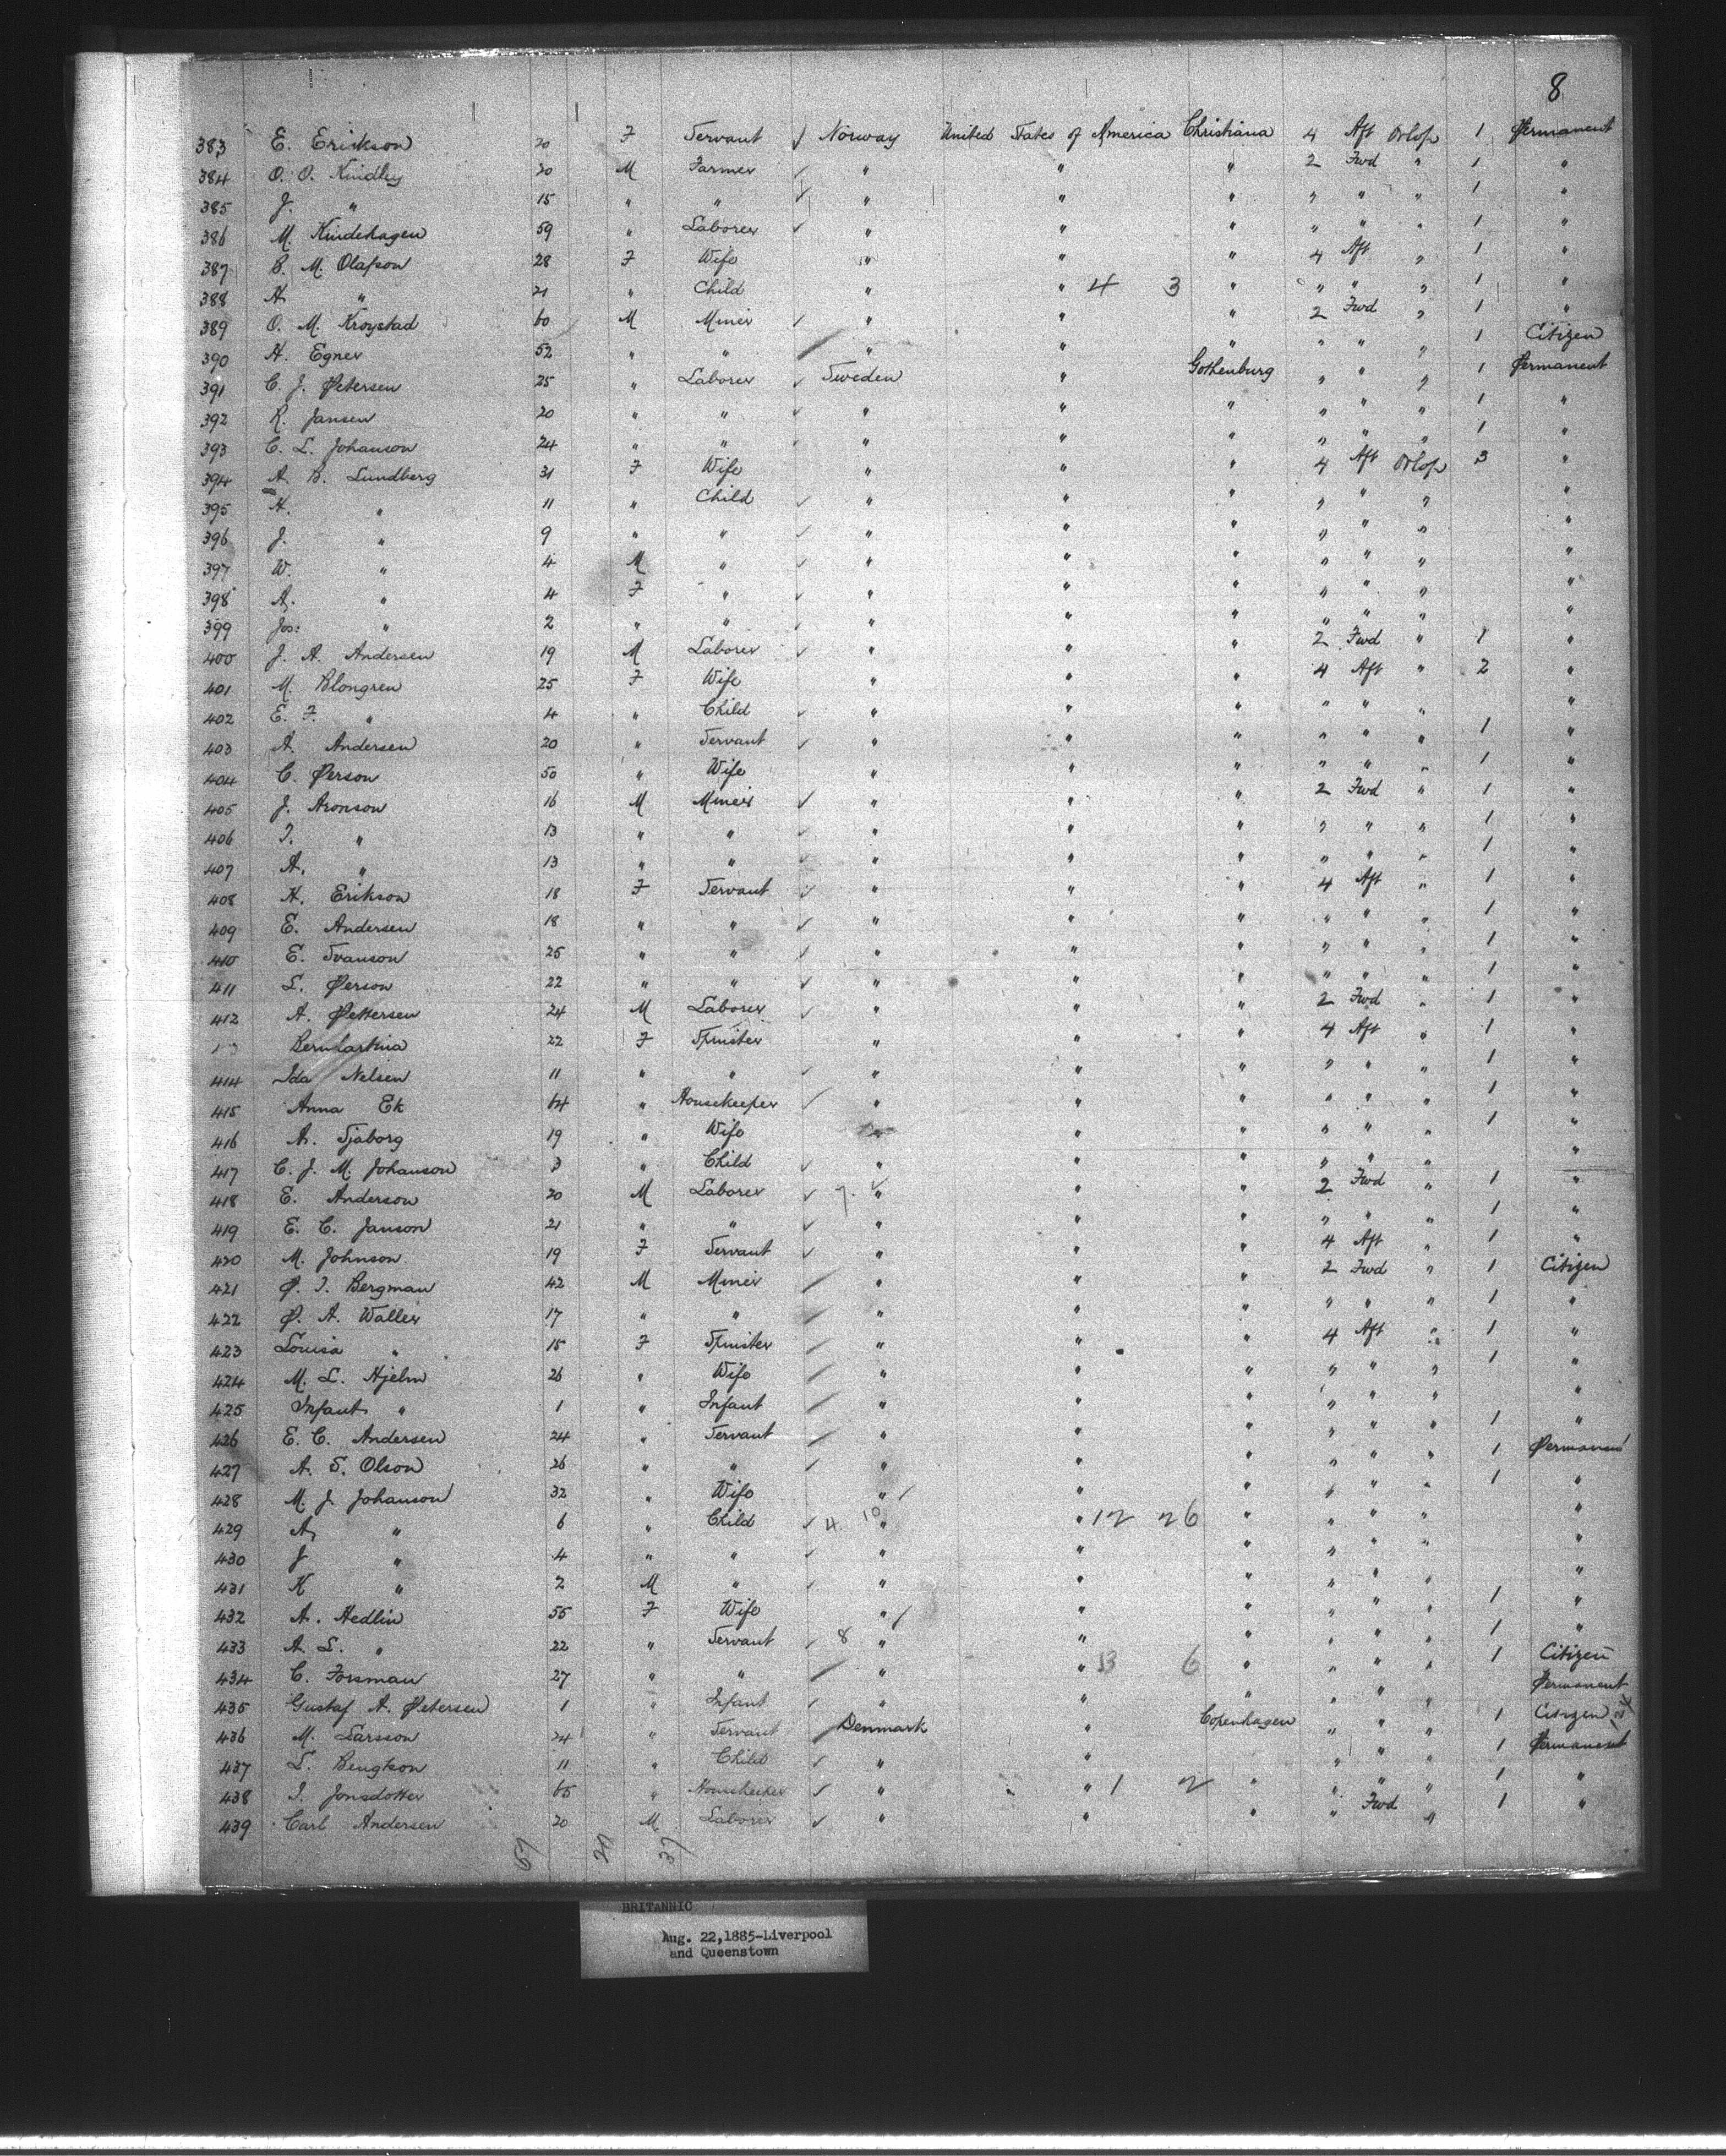 8
383 E. Erickson 20 F Servant Norway United States of America Christiana 4 Aft Orlop 1 Permanent
384 O. O. Kindley 20 M Farmer " " " 2 Fwd " 1 "
385 J. " 15 " " " " " " " " 1 "
386 M. Kindehagen 59 " Laborer " " " " " " 1 "
387 B. M. Olafson 28 F Wife " " " 4 Aft " 1 "
388 A " 21 " Child " " 4 3 " " " " 1 "
389 O. M. Kroystad 60 M Miner " " " 2 Fwd " 1 "
390 H. Egner 52 " " " " " " " " 1 Citizen
391 C. J. Petersen 25 " Laborer Sweden " Gothenburg " " " 1 Permanent
392 R. Jansen 20 " " " " " " " " 1 "
393 C. L. Johanson 24 " " " " " " " " 1 "
394 A. B. Lundberg 31 F Wife " " " 4 Aft Orlop 3 "
395 H. " 11 " Child " " " " " " "
396 J. " 9 " " " " " " " " "
397 W. " 4 M " " " " " " " "
398 A. " 4 F " " " " " " " "
399 Jos: " 2 " " " " " " " " "
400 J. A. Andersen 19 M Laborer " " " 2 Fwd " 1 "
401 M. Blongren 25 F Wife " " " 4 Aft " 2 "
402 E. F. " 4 " Child " " " " " " "
403 A. Andersen 20 " Servant " " " " " " 1 "
404 C. Person 50 " Wife " " " " " " 1 "
405 J. Aronson 16 M Miner " " " 2 Fwd " 1 "
406 T. " 13 " " " " " " " " 1 "
407 A. " 13 " " " " " " " " 1 "
408 H. Erikson 18 F Servant " " " 4 Aft " 1 "
409 E. Andersen 18 " " " " " " " " 1 "
410 E. Svanson 25 " " " " " " " " 1 "
411 L. Person 22 " " " " " " " " 1 "
412 A. Pettersen 24 M Laborer " " " 2 Fwd " 1 "
22 F Spinster " " " 4 Aft " 1 "
414 Ida Nelsen 11 " " " " " " " " 1 "
415 Anna Ek 64 " Housekeeper " " " " " " 1 "
416 A. Sjaborg 19 " Wife " " " " " 1 "
417 C. J. M. Johanson 3 " Child " " " " " " "
418 E. Anderson 20 M Laborer 7 " " " 2 Fwd " 1 "
419 E. C. Janson 21 " " " " " " " " 1 "
420 M. Johnson 19 F Servant " " " 4 Aft " 1 "
421 P. T. Bergman 42 M Miner " " " 2 Fwd " 1 Citizen
422 P. A. Waller 17 " " " " " " " " 1 "
423 Louisa " 15 F Spinster " " " 4 Aft " 1 "
424 M. L. Hjelm 26 " Wife " " " " " " 1 "
425 Infant " 1 " Infant " " " " " " "
426 E. C. Andersen 24 " Servant " " " " " " 1 "
427 A. S. Olson 26 " " " " " " " " 1 Permanent
428 M. J. Johanson 32 " Wife " " " " " " 1 "
429 A " 6 " Child 4 10 " " 12 26 " " " " "
430 J " 4 " " " " " " " " "
431 K " 2 M " " " " " " " "
432 A. Hedlin 55 F Wife " " " " " " 1 "
433 A. L. " 22 " Servant 8 " " " " " " 1 "
434 C. Forsman 27 " " " " 13 6 " " " " 1 Citizen
435 Gustaf A. Petersen 1 " Infant " " " " " " Permanent
436 M. Larsson 24 " Servant Denmark " Copenhagen " " " 1 Citizen
437 L. Bengtson 11 " Child " " " " " 1 Permanent
438 I. Jonsdotter 65 " Housekeeper " " 1 2 " " " " 1 "
439 Carl Andersen 20 M Laborer " " " " Fwd " 1 "
57 20 37
BRITANNIC
Aug. 22,1885-Liverpool
and Queenstown